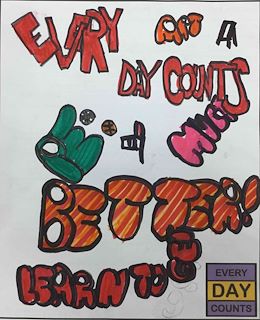 EVERY
DAY COUNTS
MUCH
BETTER!
LEARN TO BE
EVERY
DAY
COUNTS